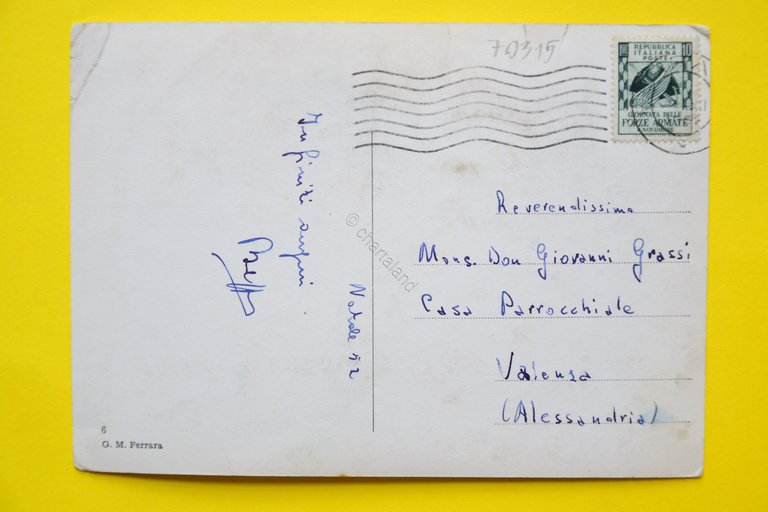 70315
REPUBBLICA
ITALIANA
POSTE
10
GIORNATA DELLE
FORZE ARMATE
4 NOVEMBRE
Infiniti auguri
Natale 52
Reverendissimo
Mons. Don Giovanni Grassi
Casa Parrocchiale
Valenza
(Alessandria)
6
G. M. Ferrara
© chartaland